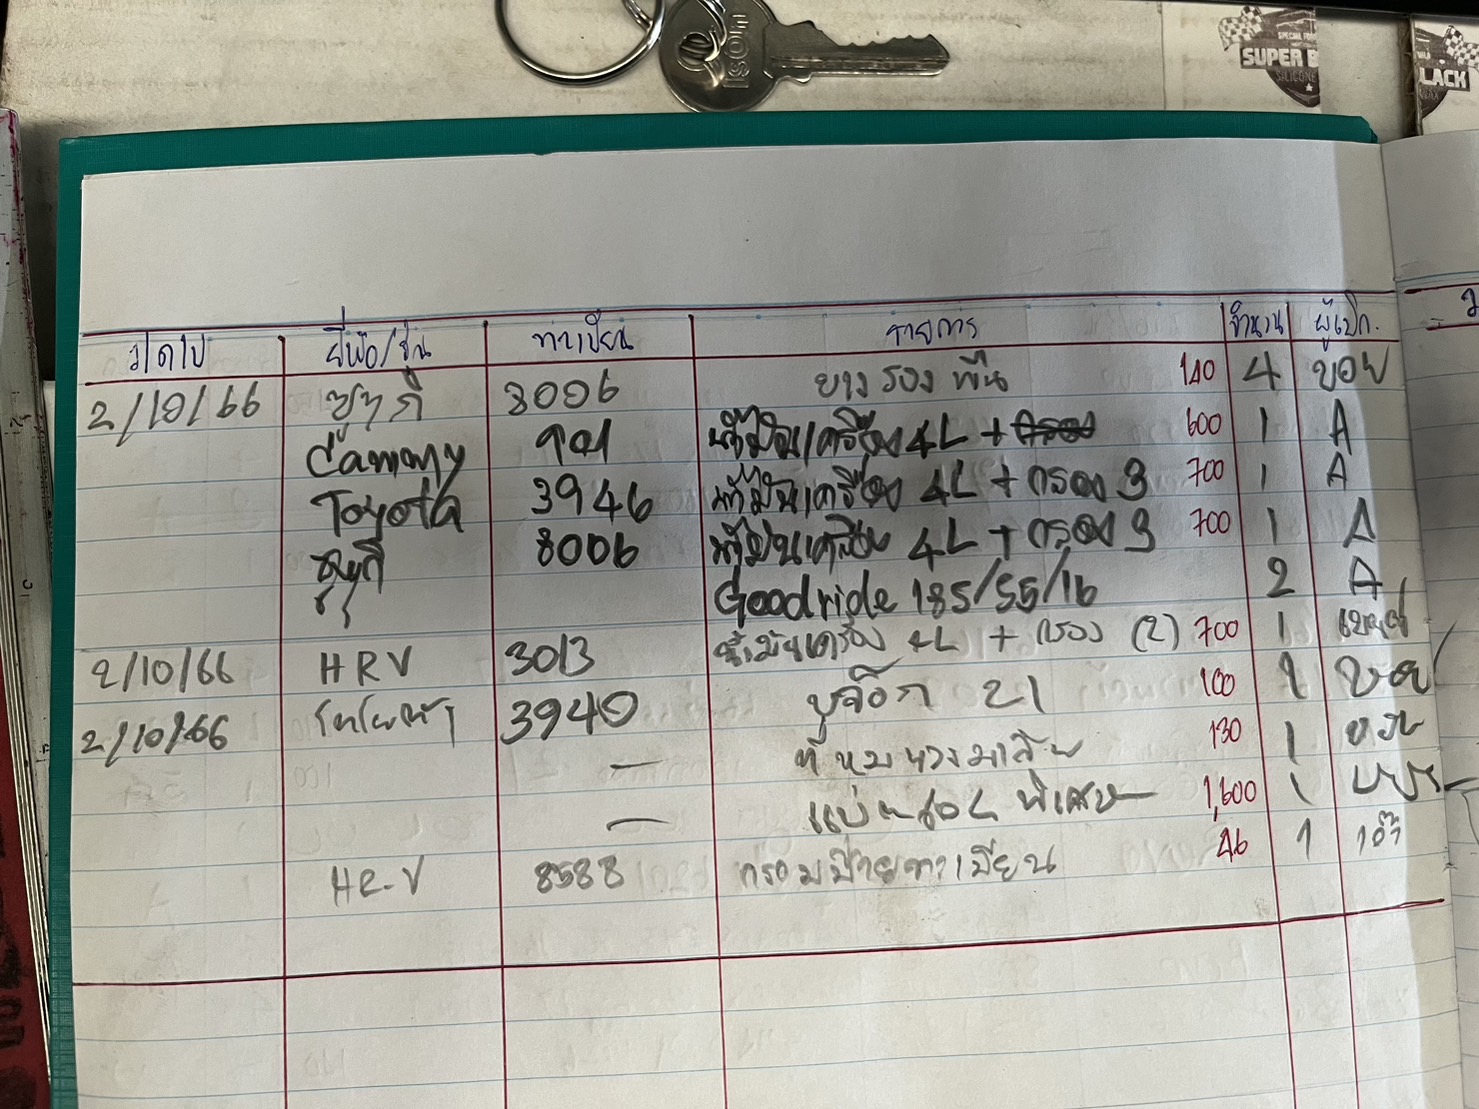 ISON
SPECIAL FOR
SUPER B
SILICONE
LACK
ว/ด/ป ยี่ห้อ/รุ่น ทะเบียน รายการ จำนวน ผู้เบิก.
2/10/66 ซูซูกิ 8006 ยางรองพื้น 140 4 บอย
Cammy 901 น้ำมันเครื่อง 4L + 600 1 A
Toyota 3946 น้ำมันเครื่อง 4L + กรอง 3 700 1 A
ซูซูกิ 8006 น้ำมันเครื่อง 4L + กรอง 3 700 1 A
Goodride 185/55/16 2 A
2/10/66 HRV 3013 น้ำมันเครื่อง 4L + กรอง (2) 700 1
2/10/66 โตโยต้า 3940 บูจิ๊อก 21 100 1 บอย
— ที่หุ้มพวงมาลัย 130 1 บอย
— พิเศษ 1,600 1
HR-V 8588 กรอบป้ายทะเบียน 46 1 เต๋า